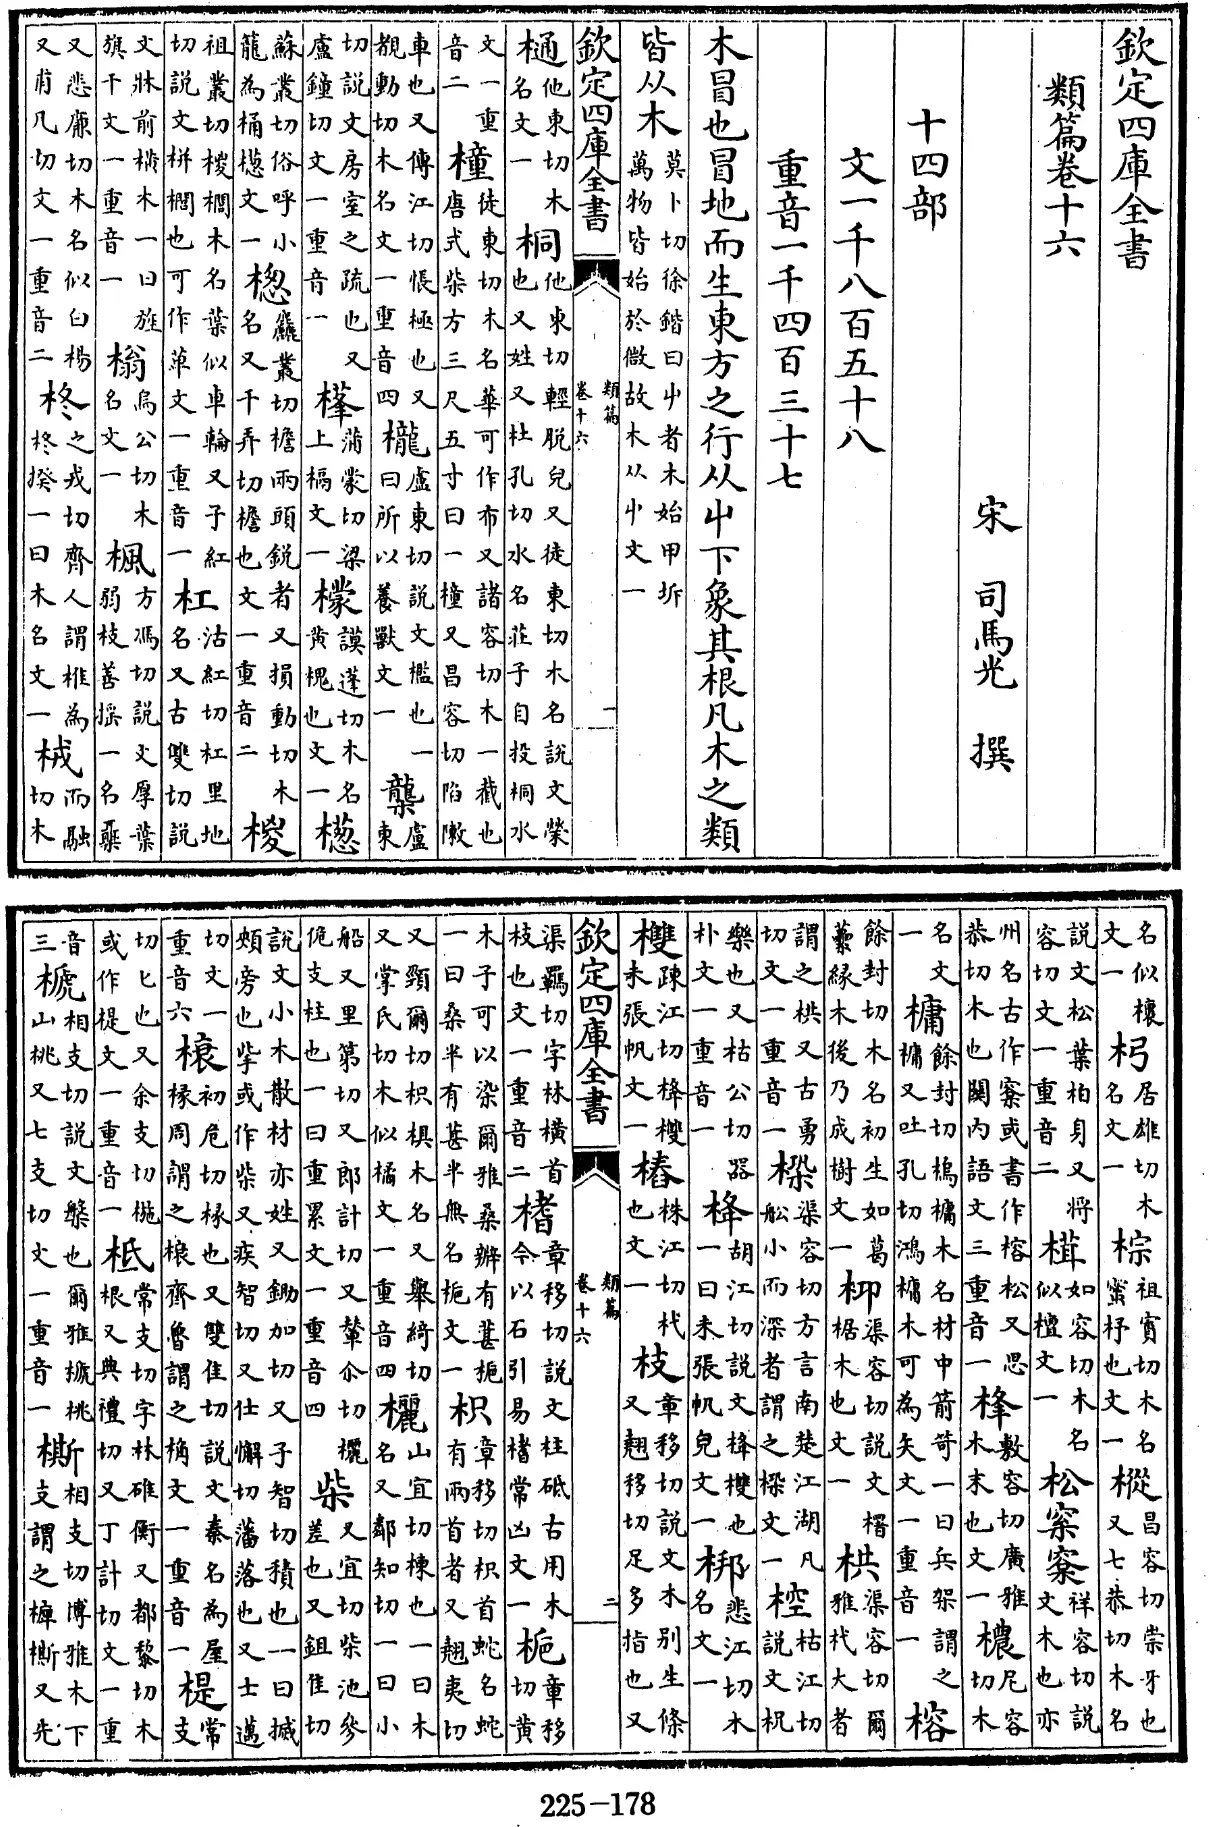 欽定四庫全書
類篇卷十六
宋 司馬光 撰
十四部
文一千八百五十八
重音一千四百三十七
木冒也冒地而生東方之行从屮下象其根凡木之類
皆从木莫卜切徐鍇曰屮者木始甲坼萬物皆始於微故木从屮文一
欽定四庫全書 類篇卷十六 一
樋他東切木名文一桐他東切輕脫皃又徒東切木名說文榮也又姓又杜孔切水名莊子自投桐水
文一重音二橦徒東切木名華可作布又諸容切木一截也唐式柴方三尺五寸曰一橦又昌容切陷敶
車也又傳江切帳極也又覩動切木名文一重音四櫳盧東切說文檻也一曰所以養獸文一盧東
切說文房室之疏也又盧鐘切文一重音一蒲蒙切梁上槅文一檬謨蓬切木名黃槐也文一樬
蘇叢切俗呼小籠為桶樬文一麤叢切檐兩頭銳者又損動切木名又千弄切檐也文一重音二椶
祖叢切椶櫚木名葉似車輪又子紅切說文栟櫚也可作萆文一重音一杠沽紅切杠里地名又古雙切說
文牀前橫木一曰旌旗干文一重音一㮬烏公切木名文一楓方馮切說文厚葉弱枝善搖一名
又悲廉切木名似白楊又甫凡切文一重音二柊之戎切齊人謂椎為柊揆一曰木名文一而融切木
名似檍文一居雄切木名文一棕祖賨切木名蜜杼也文一樅昌容切崇牙也又七恭切木名
說文松葉柏身又將容切文一重音二如容切木名似檀文一松祥容切說文木也亦
州名古作或書作榕松又思恭切木也關內語文三重音一桻敷容切廣雅木末也文一檂尼容切木
名文一槦餘封切槦木名材中箭笴一曰兵架謂之槦又吐孔切鴻槦木可為矢文一重音一榕
餘封切木名初生如葛藟緣木後乃成樹文一渠容切說文椐木也文一栱渠容切爾雅杙大者
謂之栱又古勇切文一重音一渠容切方言南楚江湖凡船小而深者謂之文一椌枯江切說文柷
樂也又枯公切器朴文一重音一栙胡江切說文栙雙也一曰未張帆皃文一梆悲江切木名文一
㯠疎江切栙㯠未張帆文一樁株江切杙也文一枝章移切說文木別生條又翹移切足多指也又
欽定四庫全書 類篇卷十六 二
渠羈切字林橫首枝也文一重音二楮章移切說文柱砥古用木令以石引易楮常凶文一梔章移切黃
木子可以染爾雅桑辨有葚梔一曰桑半有葚半無名梔文一枳章移切枳首蛇名蛇有兩首者又翹夷切
又頸爾切枳椇木名又舉綺切又掌氏切木似橘文一重音四欐山宜切棟也一曰木名又鄰知切一曰小
船又里第切又郎計切又輦尒切欐佹支柱也一曰重累文一重音四柴又宜切柴池參差也又鉏隹切
說文小木散材亦姓又鋤加切又子智切積也一曰搣頰旁也㧘或作柴又疾智切又仕懈切藩落也又士邁
切文一重音六榱初危切椽也又雙隹切說文秦名為屋椽周謂之榱齊魯謂之桷文一重音一㮛常支
切匕也又余支切椸或作㮛文一重音一柢常支切字林碓衡又都黎切木根又典禮切又丁計切文一重
音三榹相支切說文槃也爾雅榹桃山桃又七支切文一重音一㯕相支切博雅木下支謂之㯕又先
225-178